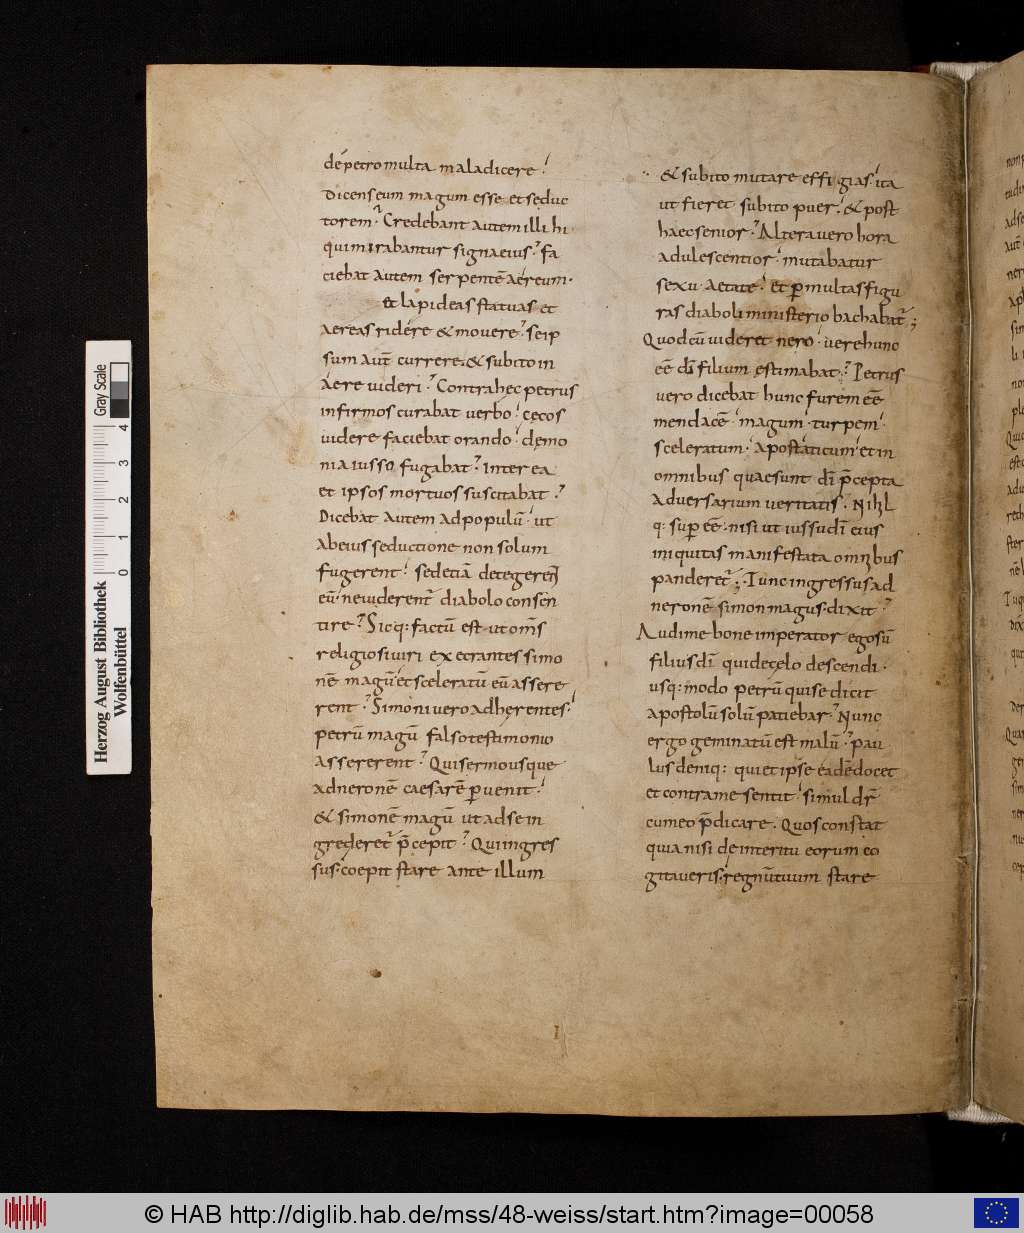 de petro multa maladicere
Dicens eum magum esse et seduc
torem. Credebant autem illi hi
qui mirabantur signa eius. fa
ciebat autem serpentē aereum.
et lapideas statuas et
aereas ridere & movere. se ip
sum aut̄ currere. & subito in
aere uideri. Contra hec petrus
infirmos curabat verbo. cęcos
uidere faciebat orando. demo
nia iusso fugabat. Inter ea
et ipsos mortuos suscitabat.
Dicebat autem ad populū. ut
ab eius seductione non solum
fugerent. sed etiā detegerent
eū. ne uiderent̄ diabolo consen
tire. Sicq: factū est. ut om̄s
religiosi uiri execrantes simo
nē magū et sceleratū eū assere
rent. Simoni vero adherentes.
petrū magū falso testimonio
assererent. Qui sermo usque
ad neronē caesarē puenit.
& simonē magū ut ad se in
grederet̄ p̄cepit. Qui ingres
sus. coepit stare ante illum
& subito mutare effigias. ita
ut fieret subito puer. & post
haec senior. Altera vero hora
adulescentior. mutabatur
sexu aetate. et p multas figu
ras diaboli ministerio bachabat̄;
Quod cū uideret nero. uere hunc
eē dī filium estimabat. Petrus
vero dicebat hunc furem eē
mendacē. magum. turpem.
sceleratum. apostaticum. et in
omnibus quae sunt dī p̄cepta
adversarium veritatis. Nihil
q: sup eē. nisi ut iussu dī eius
iniquitas manifestata omnibus
panderet̄; Tunc ingressus ad
neronē simon magus. dixit.
Audi me bone imperator. ego sū
filius dī qui de cęlo descendi.
usq: modo petrū qui se dicit
apostolū solū patiebar. Nunc
ergo geminatū est malū. pau
lus deniq: qui et ipse eadē docet
et contra me sentit. simul dr̄
cum eo p̄dicare. Quos constat
quia nisi de interitu eorum co
gitaueris. regnū tuum stare
Herzog August Bibliothek
Wolfenbüttel
0 1 2 3 4
Gray Scale
© HAB http://diglib.hab.de/mss/48-weiss/start.htm?image=00058